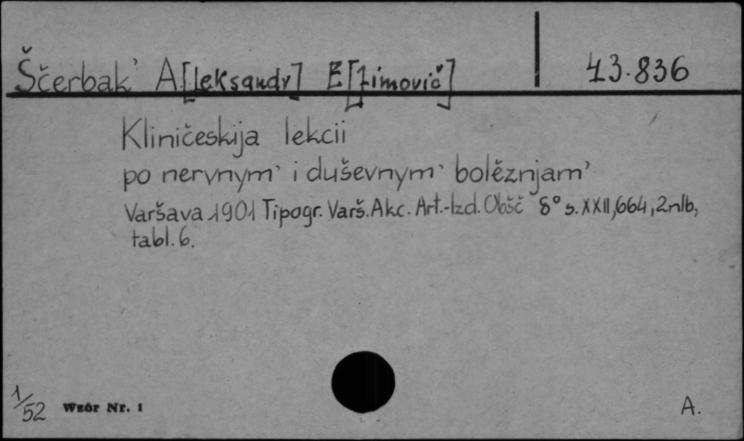 Ščerbak' A[leksandr] E[fimovič] 43.836
Kliničeskija lekcii
po nervnym' i duševnym' bolěznjam'
Varšava 1901 Tipogr. Varš. Akc. Art.-Izd. Obšč 8° s. XXII, 664, 2nlb,
tabl. 6.
1/52 Wzór Nr. 1 A.